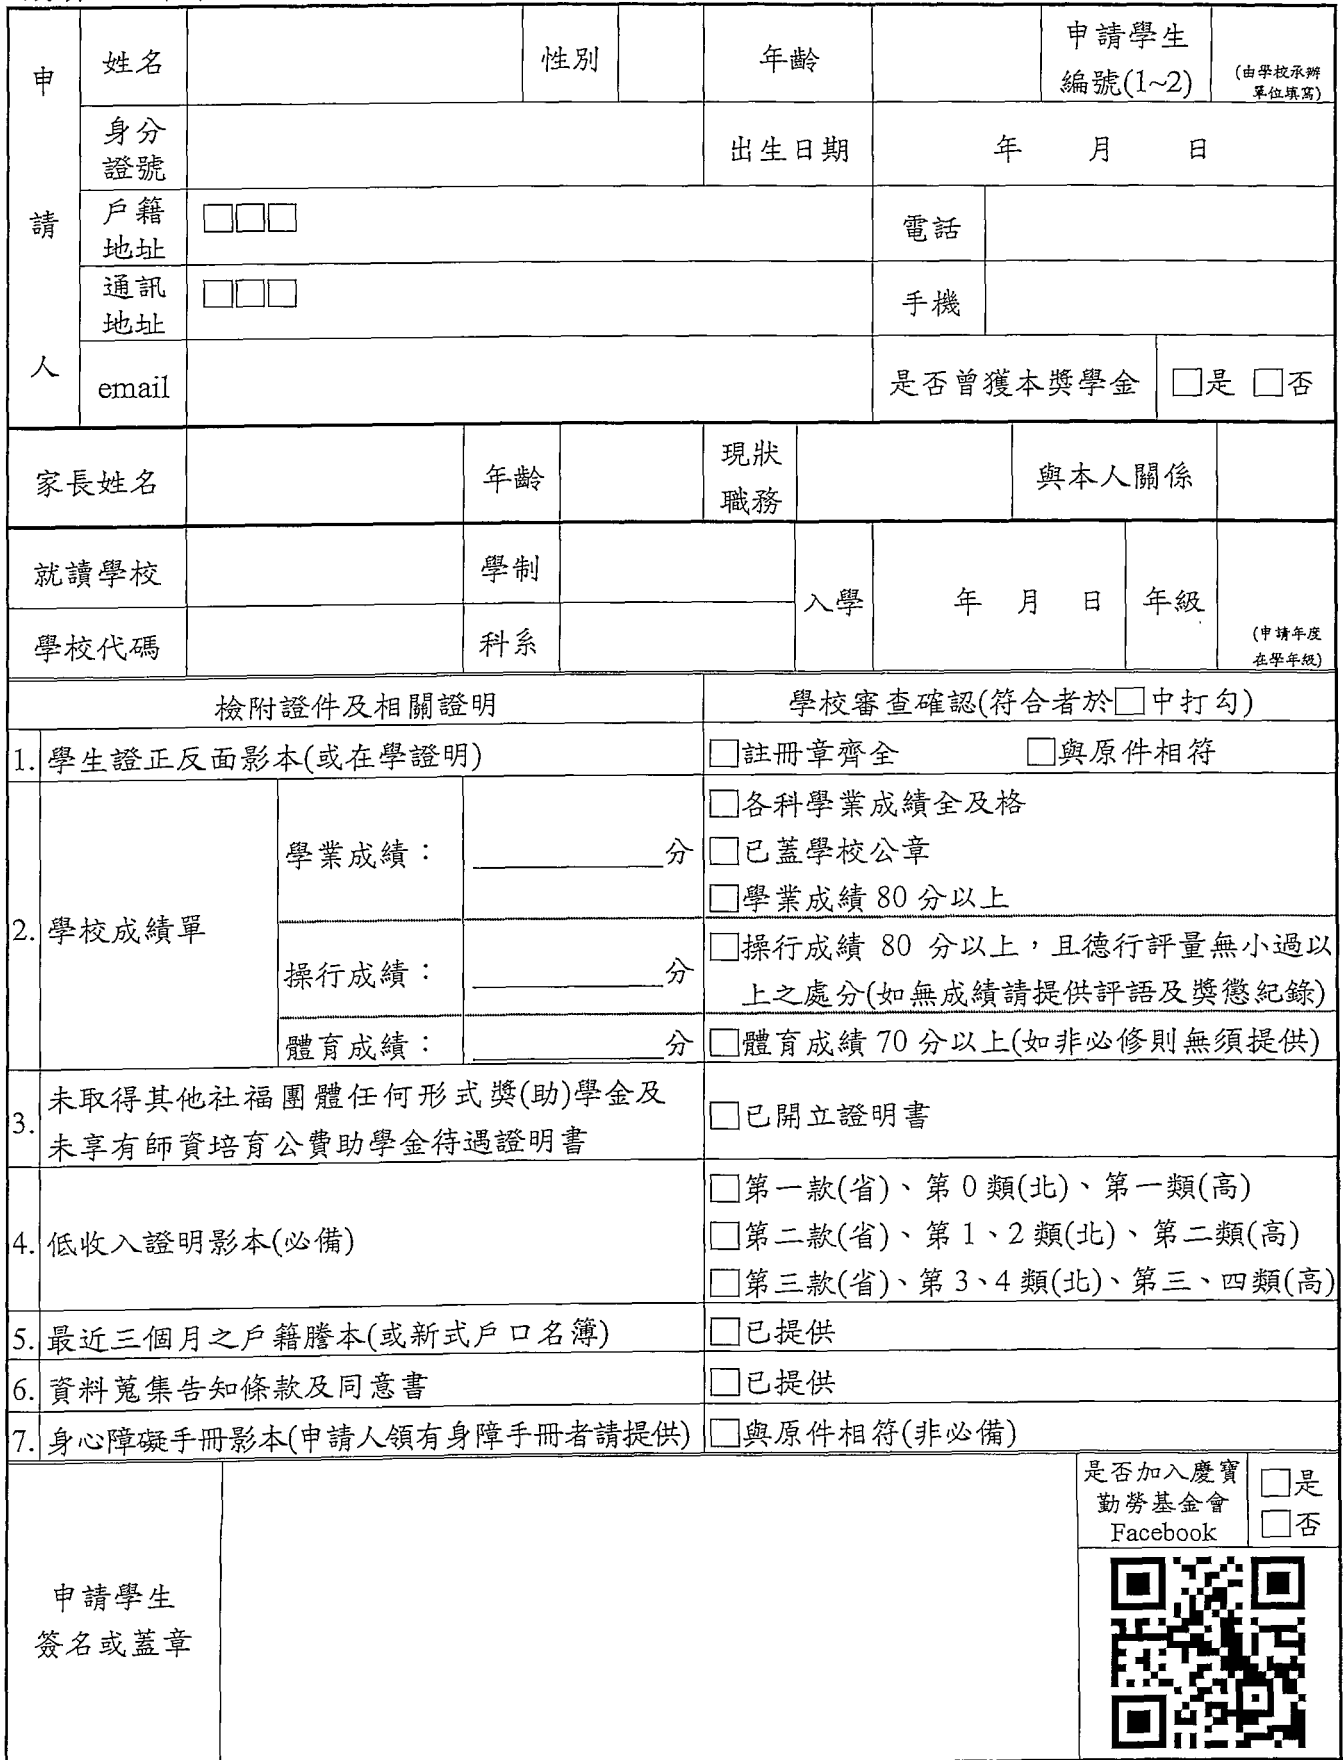 申請人
姓名 性別 年齡 申請學生編號(1~2) (由學校承辦單位填寫)
身分證號 出生日期 年 月 日
戶籍地址 □□□ 電話
通訊地址 □□□ 手機
email 是否曾獲本獎學金 □是 □否
家長姓名 年齡 現狀職務 與本人關係
就讀學校 學制 入學 年 月 日 年級 (申請年度在學年級)
學校代碼 科系
檢附證件及相關證明 學校審查確認(符合者於□中打勾)
1. 學生證正反面影本(或在學證明) □註冊章齊全 □與原件相符
2. 學校成績單
學業成績： ________分
□各科學業成績全及格
□已蓋學校公章
□學業成績 80 分以上
操行成績： ________分
□操行成績 80 分以上，且德行評量無小過以
上之處分(如無成績請提供評語及獎懲紀錄)
體育成績： ________分 □體育成績 70 分以上(如非必修則無須提供)
3. 未取得其他社福團體任何形式獎(助)學金及
未享有師資培育公費助學金待遇證明書
□已開立證明書
4. 低收入證明影本(必備)
□第一款(省)、第 0 類(北)、第一類(高)
□第二款(省)、第 1、2 類(北)、第二類(高)
□第三款(省)、第 3、4 類(北)、第三、四類(高)
5. 最近三個月之戶籍謄本(或新式戶口名簿) □已提供
6. 資料蒐集告知條款及同意書 □已提供
7. 身心障礙手冊影本(申請人領有身障手冊者請提供) □與原件相符(非必備)
申請學生
簽名或蓋章
是否加入慶寶
勤勞基金會
Facebook
□是
□否